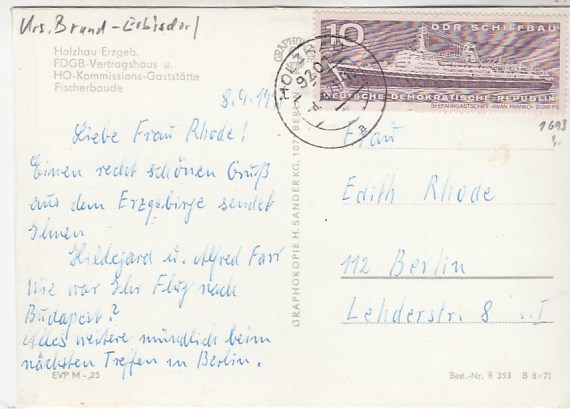 Krs. Brand-Erbisdorf
Holzhau Erzgeb.
FDGB-Vertragshaus u.
HO-Kommissions-Gaststätte
Fischerbaude
8.9.19
Liebe Frau Rhode!
Einen recht schönen Gruß
aus dem Erzgebirge sendet
Ihnen
Hildegard u. Alfred
Wie war Ihr Flug nach
Budapest?
Alles weitere mündlich beim
nächsten Treffen in Berlin.
EVP M -,25
GRAPHOKOPIE H. SANDER KG, 107 BERLIN
10
DDR-SCHIFFBAU
DEUTSCHE DEMOKRATISCHE REPUBLIK
SEEFAHRGASTSCHIFF »IWAN FRANKO« 21000 PS
HOLZHAU
1693
Frau
Edith Rhode
112 Berlin
Lehderstr. 8 v. I
Best.-Nr. R 353 B 8/71